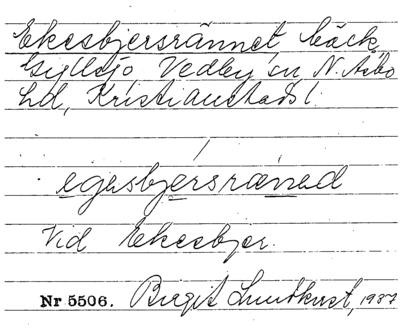 Ekesbjersrännet, bäck,
Gyllsjö Vedby sn, N. Åsbo
hd, Kristianstads l.
egesbjersræned
Vid Ekesbjer.
Nr 5506. Birgit Lundkvist, 1937